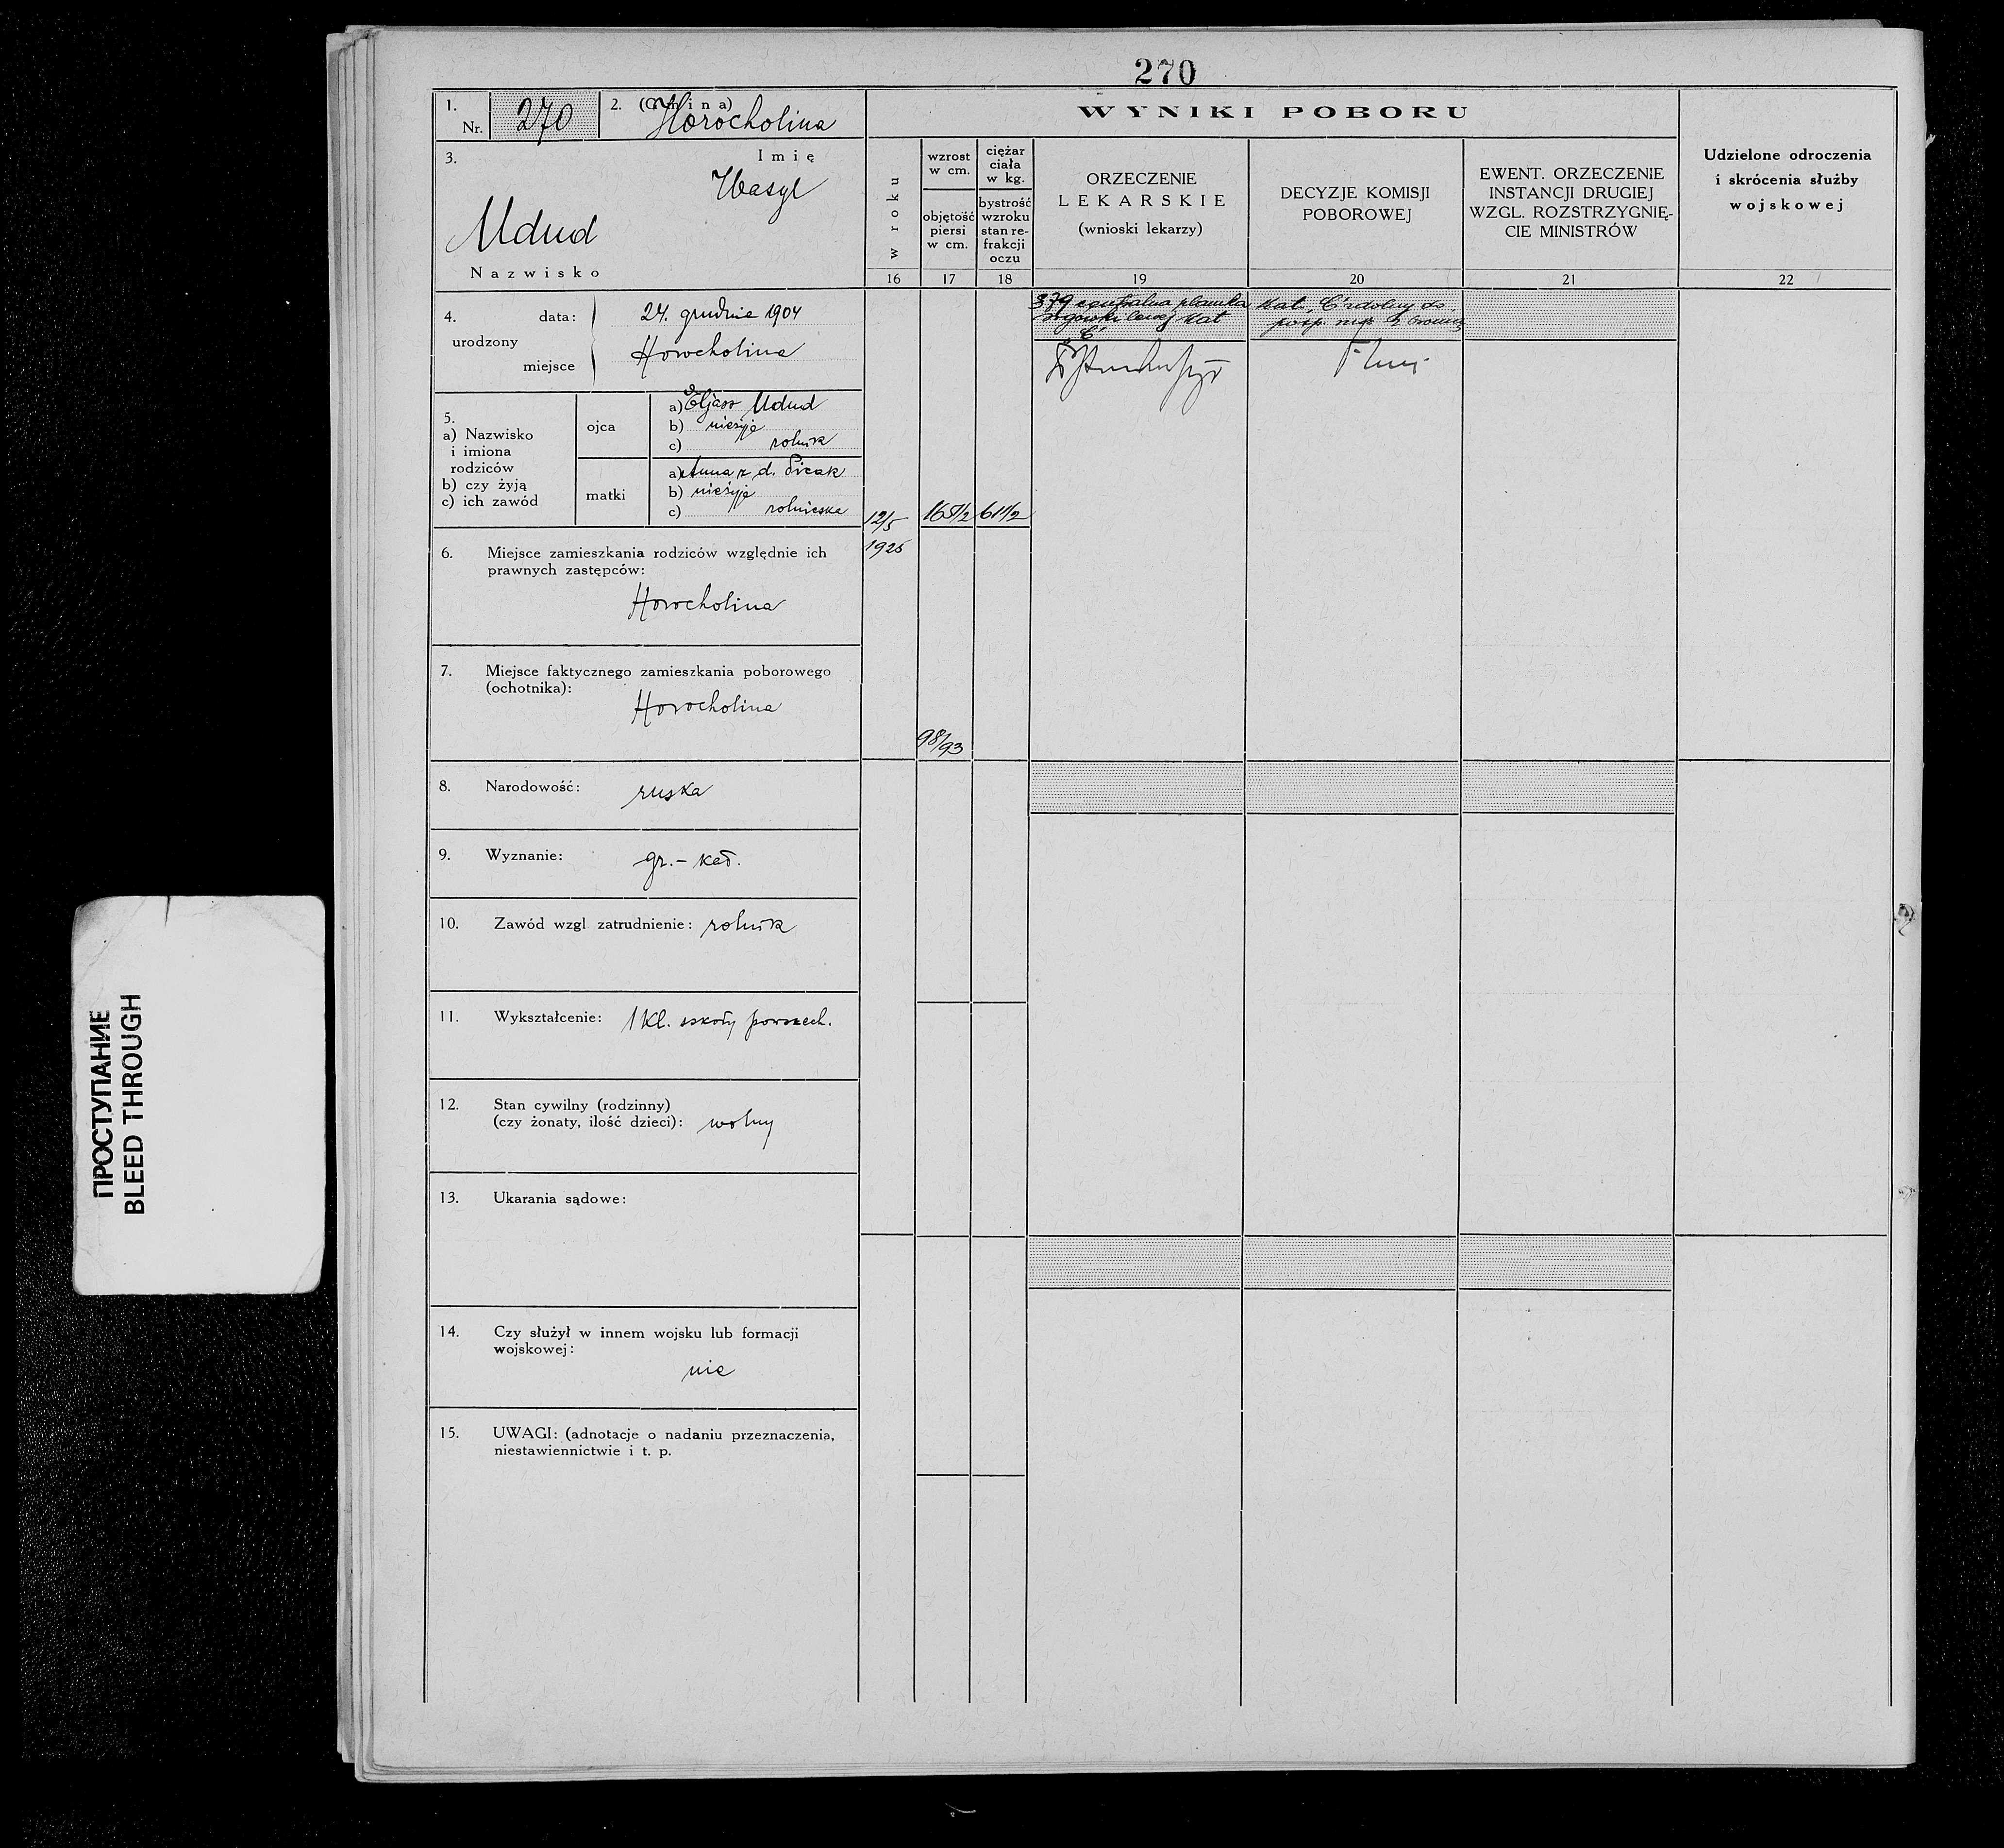 270
1.
Nr. 270
2. (Gmina)
Horocholina
3.
Imię
Wasyl
Udud
Nazwisko
WYNIKI POBORU
w roku
wzrost
w cm.
objętość
piersi
w cm.
ciężar
ciała
w kg.
bystrość
wzroku
stan re-
frakcji
oczu
ORZECZENIE
LEKARSKIE
(wnioski lekarzy)
DECYZJE KOMISJI
POBOROWEJ
EWENT. ORZECZENIE
INSTANCJI DRUGIEJ
WZGL. ROZSTRZYGNIĘ-
CIE MINISTRÓW
Udzielone odroczenia
i skrócenia służby
wojskowej
16 17 18 19 20 21 22
4.
urodzony
data: 24. grudnia 1904
miejsce Horocholina
5.
a) Nazwisko
i imiona
rodziców
b) czy żyją
c) ich zawód
ojca
a) Eljasz Udud
b) nieżyje
c) rolnik
matki
a) Anna z d. Picak
b) nieżyje
c) rolniczka
12/5
1925
165 1/2
61 1/2
98/93
379 centralna plamka
rogówki lewej Kat
C
Kat. C zdolny do
posp. rusz. z bronią
6. Miejsce zamieszkania rodziców względnie ich
prawnych zastępców:
Horocholina
7. Miejsce faktycznego zamieszkania poborowego
(ochotnika):
Horocholina
8. Narodowość: ruska
9. Wyznanie: gr.-kat.
10. Zawód wzgl. zatrudnienie: rolnik
11. Wykształcenie: 1 kl. szkoły powszech.
12. Stan cywilny (rodzinny)
(czy żonaty, ilość dzieci): wolny
13. Ukarania sądowe:
14. Czy służył w innem wojsku lub formacji
wojskowej:
nie
15. UWAGI: (adnotacje o nadaniu przeznaczenia,
niestawiennictwie i t. p.
ПРОСТУПАНИЕ
BLEED THROUGH